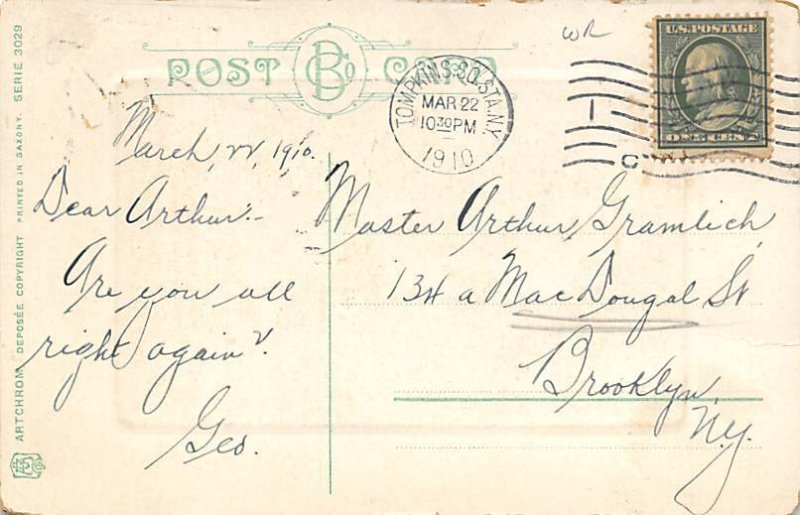 WR
U.S. POSTAGE
ONE CENT
POST CARD
TOMPKINS SQ. STA. N.Y.
MAR 22
10 30 PM
1910
March, 22, 1910.
Dear Arthur:-
Are you all
right again?
Geo.
Master Arthur Gramlich,
134 a MacDougal St
Brooklyn,
N.Y.
ARTCHROM. DEPOSÉE COPYRIGHT PRINTED IN SAXONY. SERIE 3029